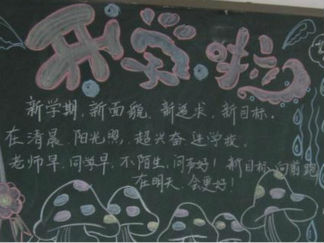 开学啦
新学期,新面貌,新追求,新目标。
在清晨,阳光照,超兴奋,进学校。
老师早,同学早,不陌生,问声好!新目标,向前跑
在明天,会更好!